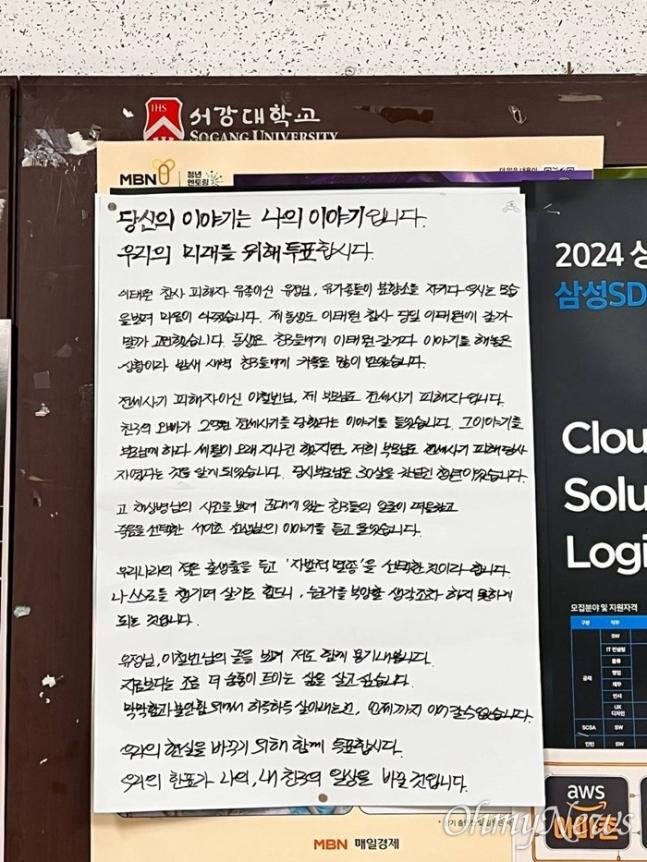 서강대학교
SOGANG UNIVERSITY
IHS
MBN
청년
멘토링
당신의 이야기는 나의 이야기입니다.
우리의 미래를 위해 투표합시다.
이태원 참사 피해자 유족이신 유정님, 유가족들이 분향소를 지키다 우시는 모습
을 보며 마음이 아팠습니다. 제 동생도 이태원 참사 당일 이태원에 갈까
말까 고민했습니다. 동생은 친구들에게 이태원 간다고 이야기를 해놓은
상황이라 밤새 새벽 친구들에게 카톡을 많이 받았습니다.
전세사기 피해자이신 이철빈님, 제 부모님도 전세사기 피해자입니다.
친구의 오빠가 2억원 전세사기를 당했다는 이야기를 들었습니다. 그 이야기를
부모님께 하다 세월이 오래 지나긴 했지만, 저희 부모님도 전세사기 피해당사
자였다는 것을 알게 되었습니다. 당시 부모님은 30살을 갓 넘긴 청년이었습니다.
고 채상병님의 사건을 보며 군대에 있는 친구들의 얼굴이 떠올랐고
죽음을 선택한 서이초 선생님의 이야기를 듣고 울었습니다.
우리나라의 적은 출생률을 두고 '자발적 멸종'을 선택한 것이라 합니다.
나 스스로를 챙기며 살기도 힘드니, 누군가를 부양할 생각조차 하지 못하게
되는 것입니다.
유정님, 이철빈님의 글을 보며 저도 함께 용기내봅니다.
지금보다는 조금 더 숨통이 트이는 삶을 살고 싶습니다.
막막함과 불안함 속에서 하루하루 살아내는 건, 언제까지 이어갈 수 없습니다.
우리의 현실을 바꾸기 위해 함께 투표합시다.
우리의 한표가 나의, 내 친구의 일상을 바꿀 것입니다.
2024 상
삼성SD
Clou
Solu
Logi
모집분야 및 지원자격
구분
직무
SW
IT 컨설팅
물류
영업
재무
인사
UX
디자인
공채
SCSA
SW
인턴
SW
aws
MBN 매일경제
OhmyNews